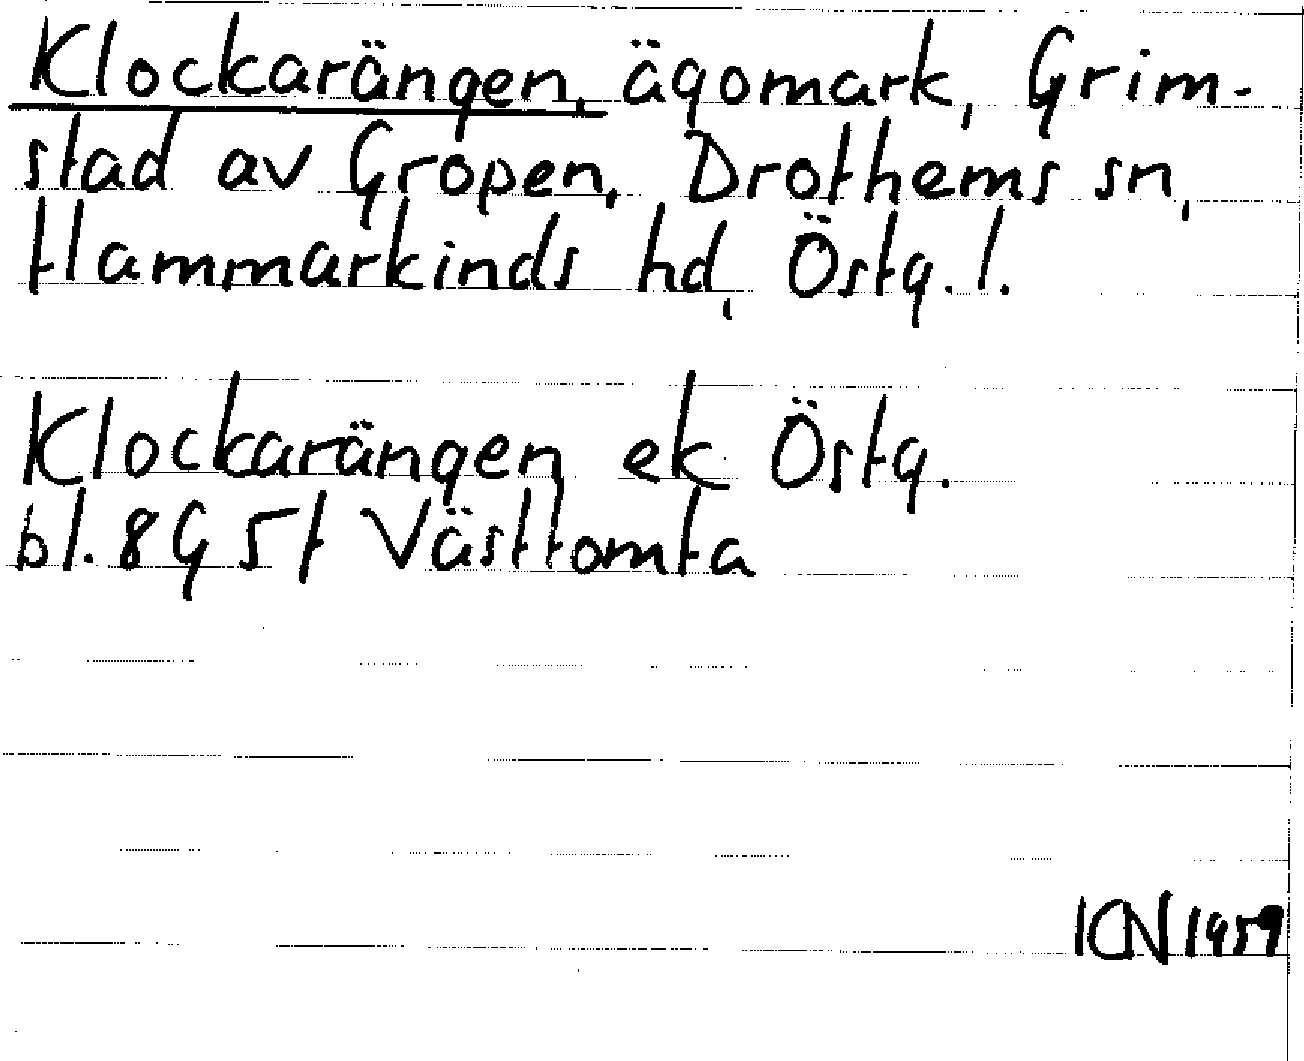 Klockarängen, ägomark, Grim-
stad av Gropen, Drothems sn,
Hammarkinds hd, Östg. l.
Klockarängen ek Östg.
bl. 8G 5f Västtomta
ICN 1959